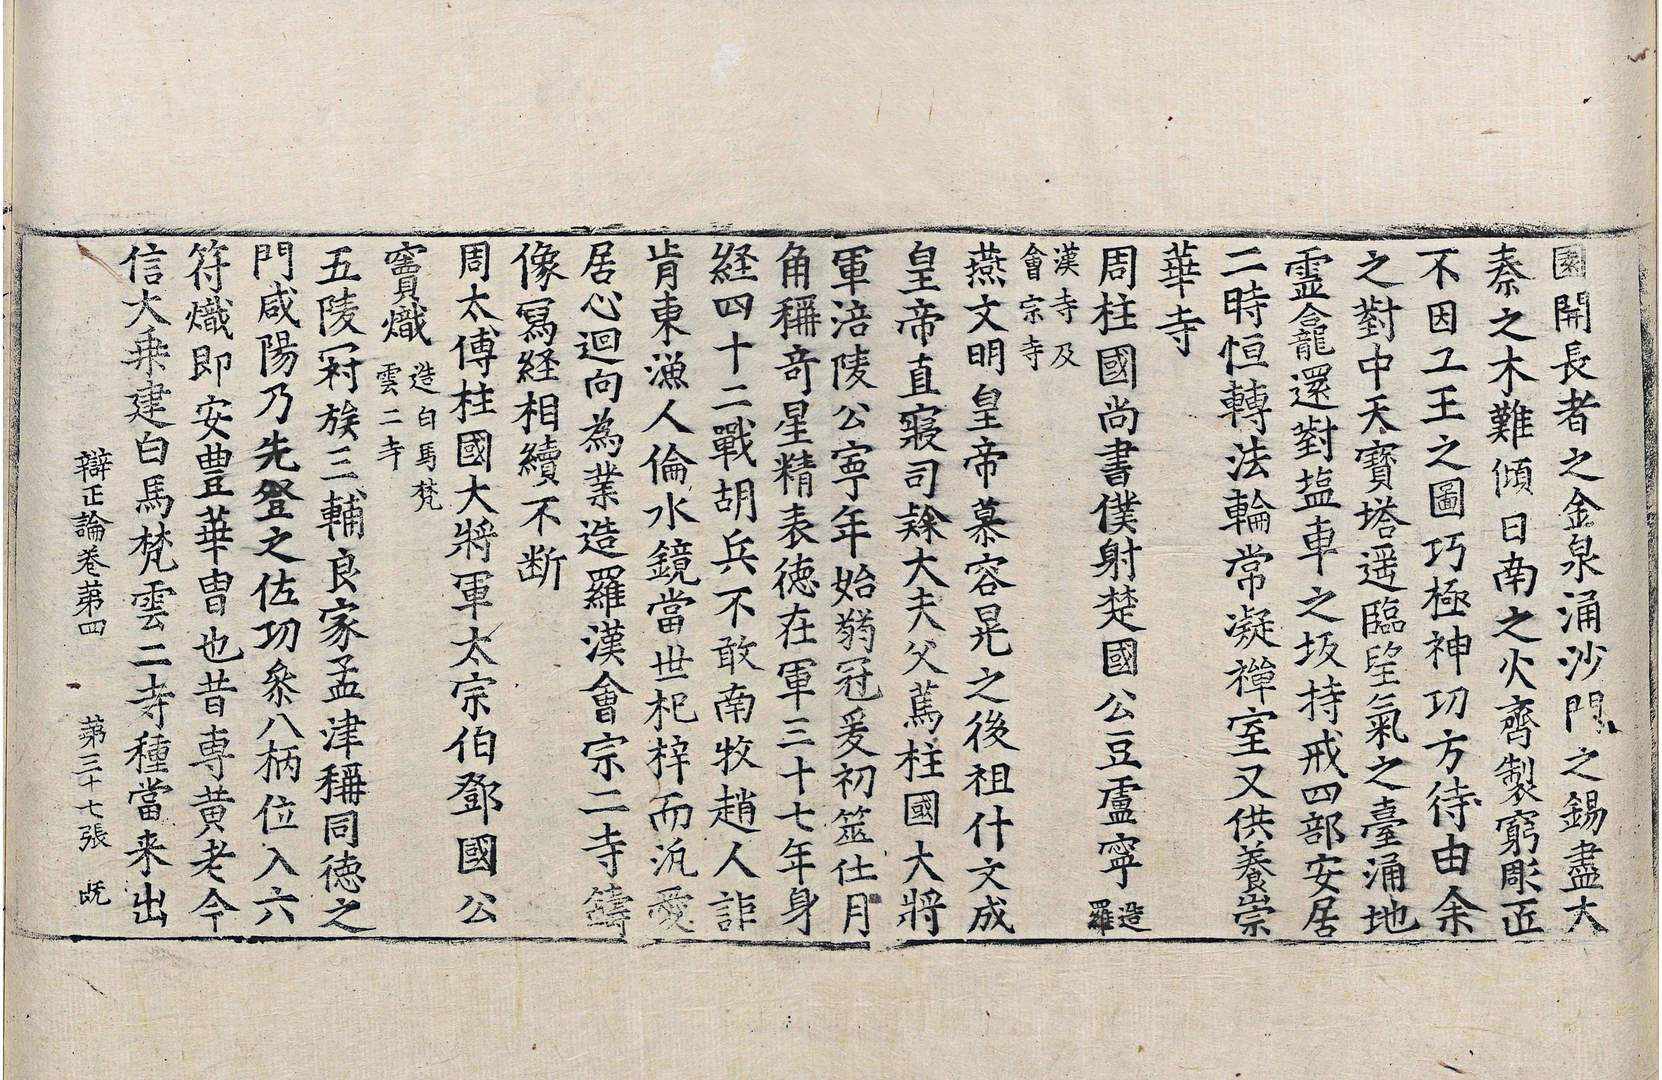 園開長者之金泉涌沙門之錫盡大
秦之木難傾日南之火齊製窮彫匠
不因工王之圖巧極神功方待由余
之對中天寶塔遥臨望氣之臺涌地
霊龕還對塩車之坂持戒四部安居
二時恒轉法輪常凝禪室又供養崇
華寺
周柱國尚書僕射楚國公豆盧寧造羅
漢寺及會宗寺
燕文明皇帝慕容晃之後祖什文成
皇帝直寢司録大夫父萇柱國大將
軍涪陵公寧年始弱冠爰初筮仕月
角稱竒星精表徳在軍三十七年身
経四十二戰胡兵不敢南牧趙人詎
肯東漁人倫水鏡當世杞梓而汎愛
居心迴向為業造羅漢會宗二寺鑄
像冩経相續不断
周太傅柱國大將軍太宗伯鄧國公
竇熾造白馬梵雲二寺
五陵冠族三輔良家孟津稱同徳之
門咸陽乃先登之佐功叅八柄位入六
符熾即安豊華胄也昔専黄老今
信大乗建白馬梵雲二寺種當来出
辯正論卷苐四　苐三十七張　旣